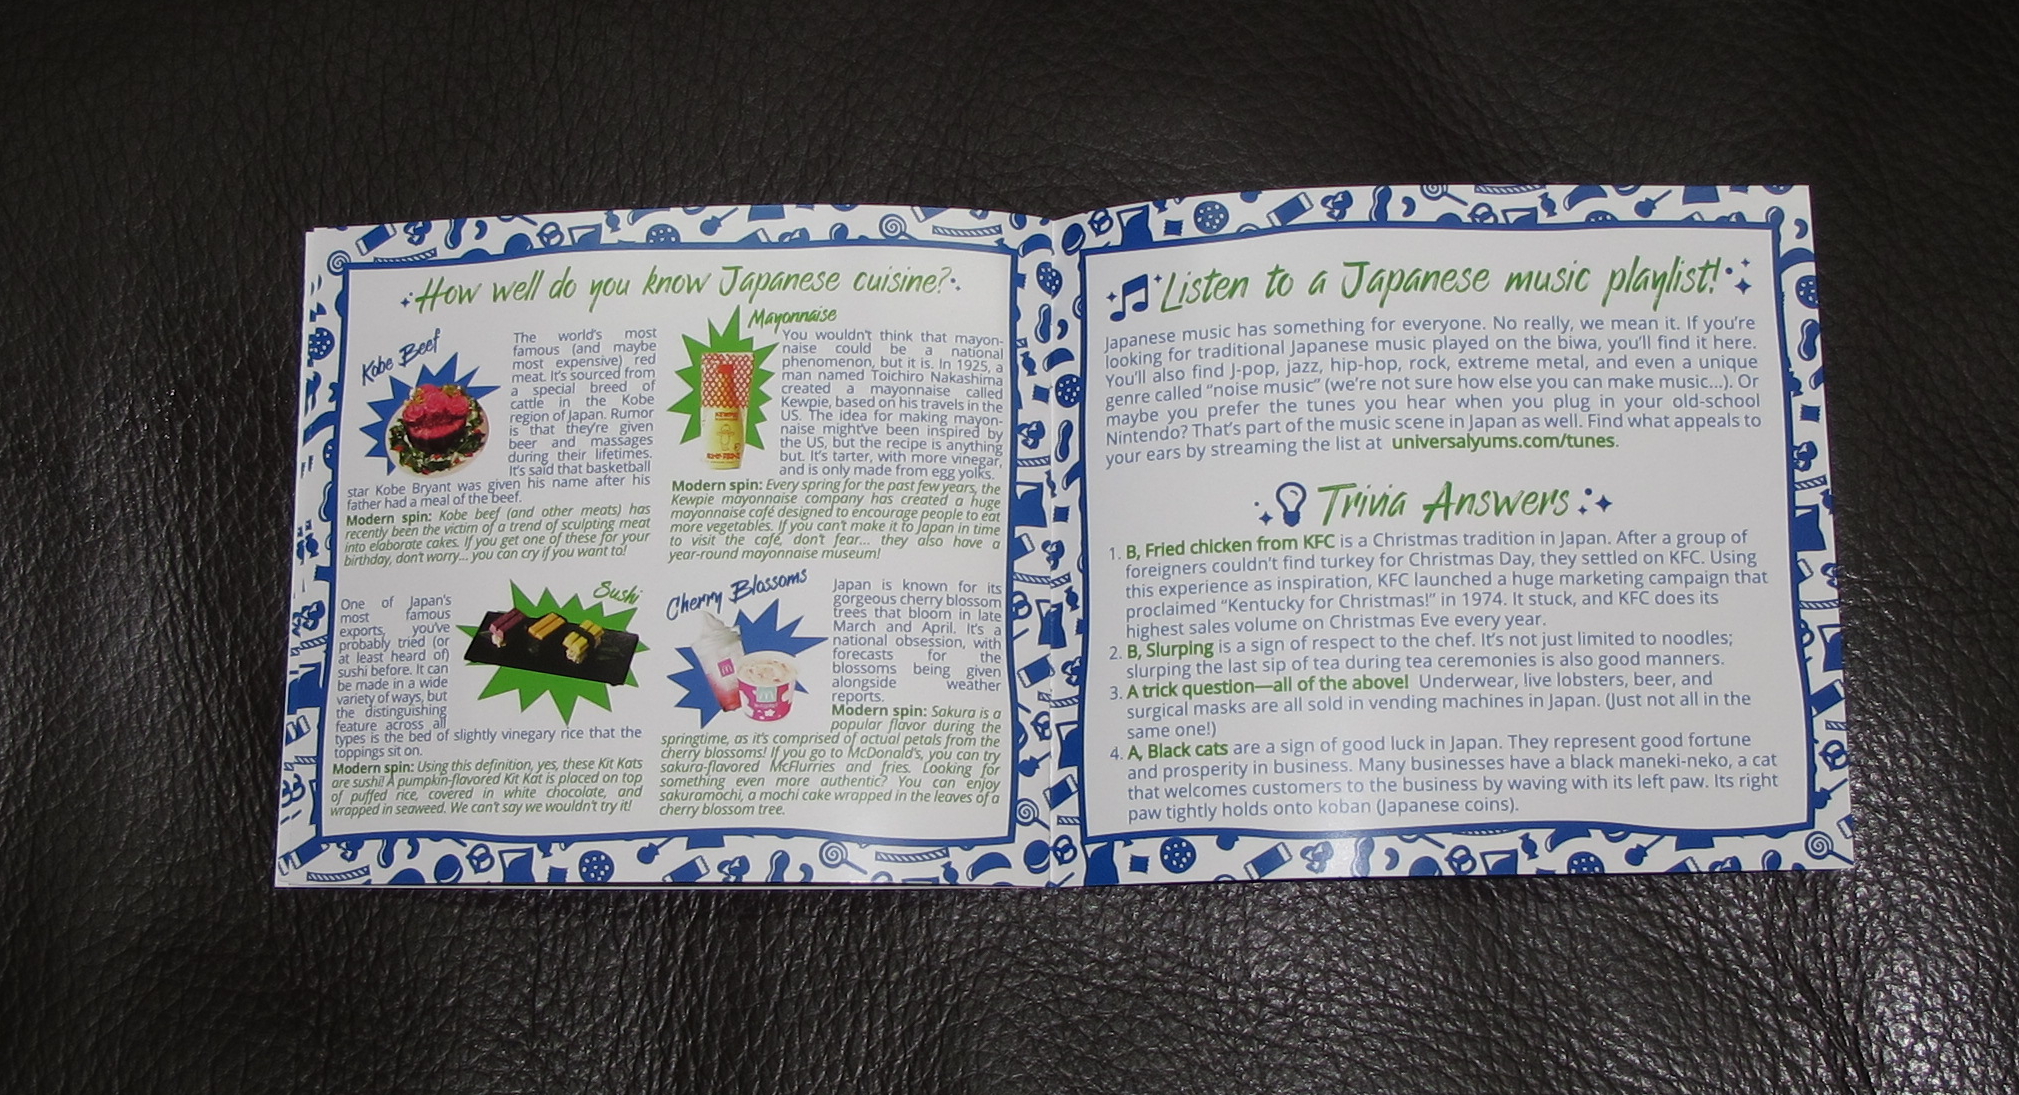 How well do you know Japanese cuisine?
Kobe Beef
The world's most
famous (and maybe
most expensive) red
meat. It's sourced from
a special breed of
cattle in the Kobe
region of Japan. Rumor
is that they're given
beer and massages
during their lifetimes.
It's said that basketball
star Kobe Bryant was given his name after his
father had a meal of the beef.
Modern spin: Kobe beef (and other meats) has
recently been the victim of a trend of sculpting meat
into elaborate cakes. If you get one of these for your
birthday, don't worry... you can cry if you want to!
Mayonnaise
You wouldn't think that mayon-
naise could be a national
phenomenon, but it is. In 1925, a
man named Toichiro Nakashima
created a mayonnaise called
Kewpie, based on his travels in the
US. The idea for making mayon-
naise might've been inspired by
the US, but the recipe is anything
but. It's tarter, with more vinegar,
and is only made from egg yolks.
Modern spin: Every spring for the past few years, the
Kewpie mayonnaise company has created a huge
mayonnaise café designed to encourage people to eat
more vegetables. If you can't make it to Japan in time
to visit the café, don't fear... they also have a
year-round mayonnaise museum!
KEWPIE
Sushi
One of Japan's
most famous
exports, you've
probably tried (or
at least heard of)
sushi before. It can
be made in a wide
variety of ways, but
the distinguishing
feature across all
types is the bed of slightly vinegary rice that the
toppings sit on.
Modern spin: Using this definition, yes, these Kit Kats
are sushi! A pumpkin-flavored Kit Kat is placed on top
of puffed rice, covered in white chocolate, and
wrapped in seaweed. We can't say we wouldn't try it!
Cherry Blossoms
Japan is known for its
gorgeous cherry blossom
trees that bloom in late
March and April. It's a
national obsession, with
forecasts for the
blossoms being given
alongside weather
reports.
Modern spin: Sakura is a
popular flavor during the
springtime, as it's comprised of actual petals from the
cherry blossoms! If you go to McDonald's, you can try
sakura-flavored McFlurries and fries. Looking for
something even more authentic? You can enjoy
sakuramochi, a mochi cake wrapped in the leaves of a
cherry blossom tree.
Listen to a Japanese music playlist!
Japanese music has something for everyone. No really, we mean it. If you're
looking for traditional Japanese music played on the biwa, you'll find it here.
You'll also find J-pop, jazz, hip-hop, rock, extreme metal, and even a unique
genre called "noise music" (we're not sure how else you can make music...). Or
maybe you prefer the tunes you hear when you plug in your old-school
Nintendo? That's part of the music scene in Japan as well. Find what appeals to
your ears by streaming the list at universalyums.com/tunes.
Trivia Answers
1. B, Fried chicken from KFC is a Christmas tradition in Japan. After a group of
foreigners couldn't find turkey for Christmas Day, they settled on KFC. Using
this experience as inspiration, KFC launched a huge marketing campaign that
proclaimed "Kentucky for Christmas!" in 1974. It stuck, and KFC does its
highest sales volume on Christmas Eve every year.
2. B, Slurping is a sign of respect to the chef. It's not just limited to noodles;
slurping the last sip of tea during tea ceremonies is also good manners.
3. A trick question—all of the above! Underwear, live lobsters, beer, and
surgical masks are all sold in vending machines in Japan. (Just not all in the
same one!)
4. A, Black cats are a sign of good luck in Japan. They represent good fortune
and prosperity in business. Many businesses have a black maneki-neko, a cat
that welcomes customers to the business by waving with its left paw. Its right
paw tightly holds onto koban (Japanese coins).